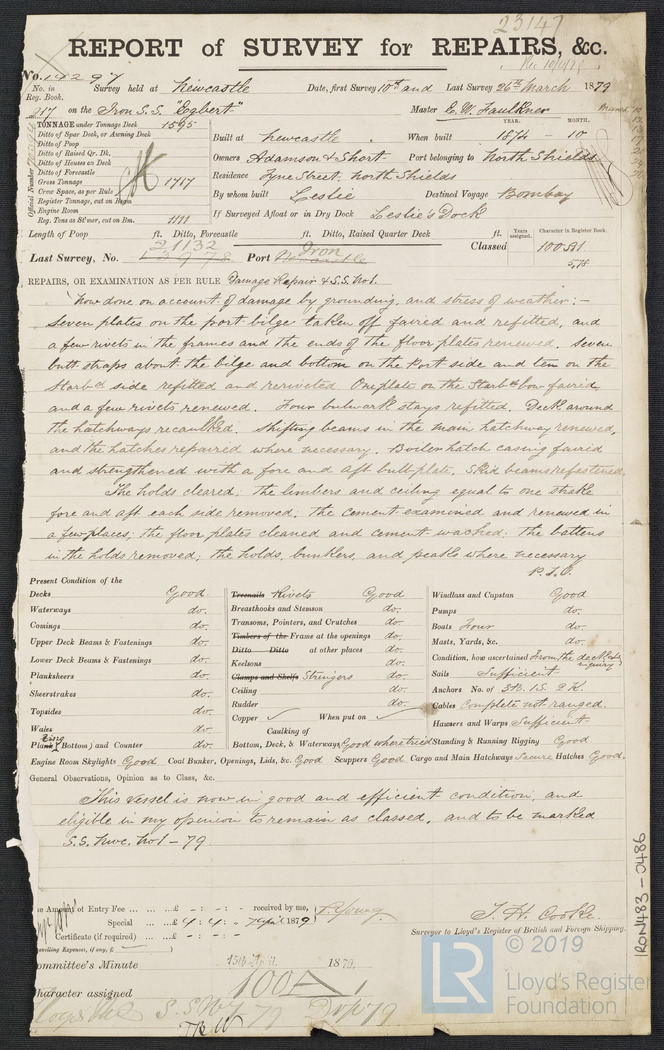 23147
REPORT of SURVEY for REPAIRS, &c.
No. 14297 Survey held at Newcastle Date, first Survey 10th and Last Survey 26th March 1879
No. in Reg. Book.
217 on the Iron S.S. "Egbert" Master E. W. Faulkner
TONNAGE under Tonnage Deck 1595
Ditto of Spar Deck, or Awning Deck
Ditto of Poop
Ditto of Raised Qr. Dk.
Ditto of Houses on Deck
Ditto of Forecastle
Gross Tonnage 1717
Crew Space, as per Rule
Register Tonnage, cut on Beam
Engine Room
Reg. Tons as St'mer, cut on Bm. 1111
Official Number
YEAR. MONTH.
Built at Newcastle When built 1874 - 10
Owners Adamson & Short Port belonging to North Shields
Residence Tyne Street, North Shields
By whom built Leslie Destined Voyage Bombay
If Surveyed Afloat or in Dry Dock Leslie's Dock
Length of Poop ft. Ditto, Forecastle ft. Ditto, Raised Quarter Deck ft. Years assigned. Character in Register Book.
Classed 100A1
5,78
21132 Iron
Last Survey, No. 13978 Port Newcastle
REPAIRS, OR EXAMINATION AS PER RULE Damage Repair & S.S. No 1.
Now done on account of damage by grounding, and stress of weather: -
Seven plates on the port bilge taken off faired and refitted, and
a few rivets in the frames and the ends of the floor plates renewed, seven
butt straps about the bilge and bottom on the Port side and ten on the
Starbd side refitted and reriveted. One plate on the Starbd bow faired,
and a few rivets renewed. Four bulwark stays refitted. Deck around
the hatchways recaulked. Shifting beams in the main hatchway renewed,
and the hatches repaired where necessary. Boiler hatch casing faired
and strengthened with a fore and aft butt plate. Skid beams refastened.
The holds cleared; the limbers and ceiling equal to one strake
fore and aft each side removed, the cement examined and renewed in
a few places; the floor plates cleaned and cement washed; the battens
in the holds removed; the holds, bunkers, and peaks where necessary
P.T.O.
Present Condition of the
Decks Good
Waterways do.
Comings do.
Upper Deck Beams & Fastenings do.
Lower Deck Beams & Fastenings do.
Planksheers do.
Sheerstrakes do.
Topsides do.
Wales do.
Plank(ing Bottom) and Counter do.
Treenails Rivets Good
Breasthooks and Stemson do.
Transoms, Pointers, and Crutches do.
Timbers of the Frame at the openings do.
Ditto Ditto at other places do.
Keelsons do.
Clamps and Shelfs Stringers do.
Ceiling do.
Rudder do.
Copper ✓ When put on ✓
Caulking of
Bottom, Deck, & Waterways Good where tried
Windlass and Capstan Good
Pumps do.
Boats Four do.
Masts, Yards, &c. do.
Condition, how ascertained From the deck & by enquiry
Sails Sufficient
Anchors No. of 3B. 1S. 2K.
Cables Complete not ranged.
Hawsers and Warps Sufficient
Standing & Running Rigging Good
Engine Room Skylights Good Coal Bunker, Openings, Lids, &c. Good Scuppers Good Cargo and Main Hatchways Secure Hatches Good.
General Observations, Opinion as to Class, &c.
This vessel is now in good and efficient condition, and
eligible in my opinion to remain as classed, and to be marked
S.S. Nwc. No 1 - 79
Amount of Entry Fee ... ... ... £ - : - : - received by me,
Special ... ... £ 4 : 4 : - 7 April 1879 P. Young
Certificate (if required) ... - : - : -
(Travelling Expenses, if any, £ )
T. H. Cooke
Surveyor to Lloyd's Register of British and Foreign Shipping.
Committee's Minute 15th April 1879.
Character assigned 100A1
S.S. Nº1 79
IRON483-0486
© 2019
LR
Lloyd's Register
Foundation